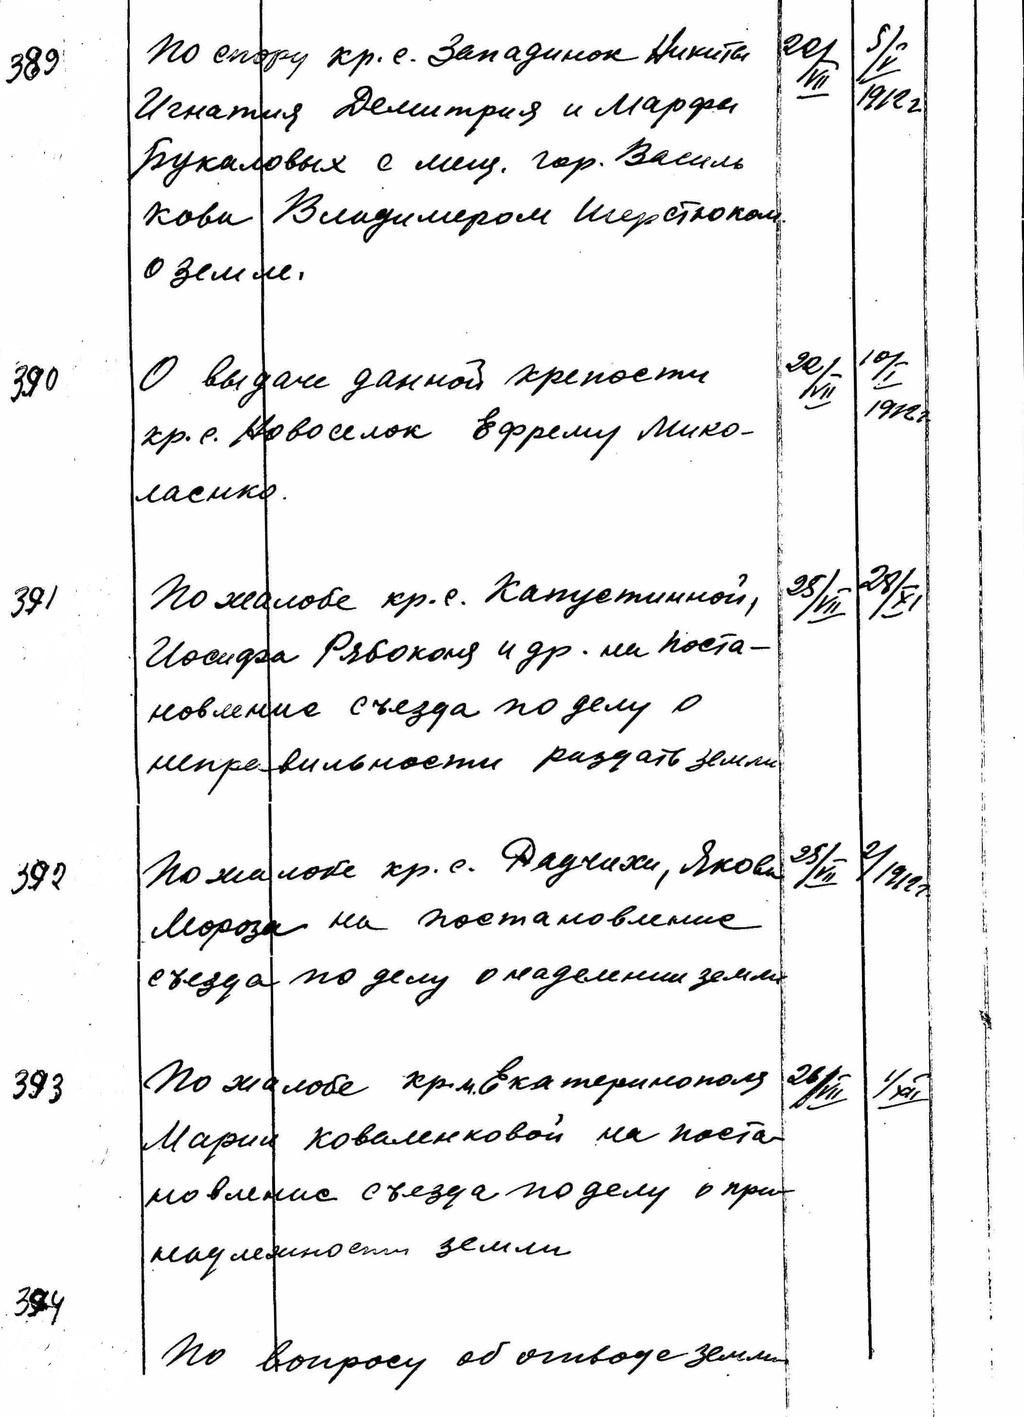 389 По спору кр. с. Западинок Никиты 20/VII 5/V
Игната Демитрия и Марфы 1912 г
Букаловых с мещ. гор. Василь
кова Владимиром Шерстюком
о земле.
390 О выдаче данной крепости 20/VII 10/I
кр. с. Новоселок Ефрему Мико- 1912 г
ласенко.
391 По жалобе кр. с. Капустинной, 25/VII 28/XI
Иосифа Рябоконя и др. на поста-
новление съезда по делу о
неправильности раздать земли
392 По жалобе кр. с. Радчихи, Якова 25/VII 2/ 1912 г
Мороза на постановление
съезда по делу о наделении земли
393 По жалобе кр. м. Екатеринополя 26/VII 1/XII
Марии Коваленковой на поста-
новление съезда по делу о при-
надлежности земли
394
По вопросу об отводе земли